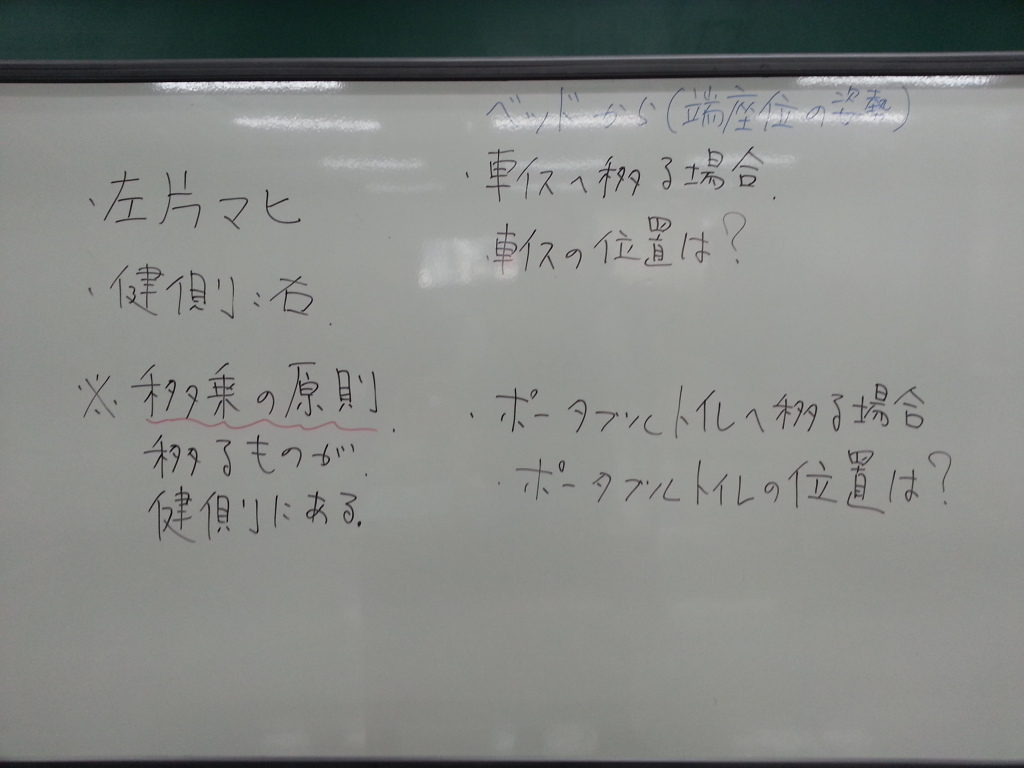 ・左片マヒ
・健側:右.
※.移乗の原則.
移るものが.
健側にある.
ベッドから(端座位の姿勢)
・車イスへ移る場合.
車イスの位置は?
・ポータブルトイレへ移る場合
・ポータブルトイレの位置は?